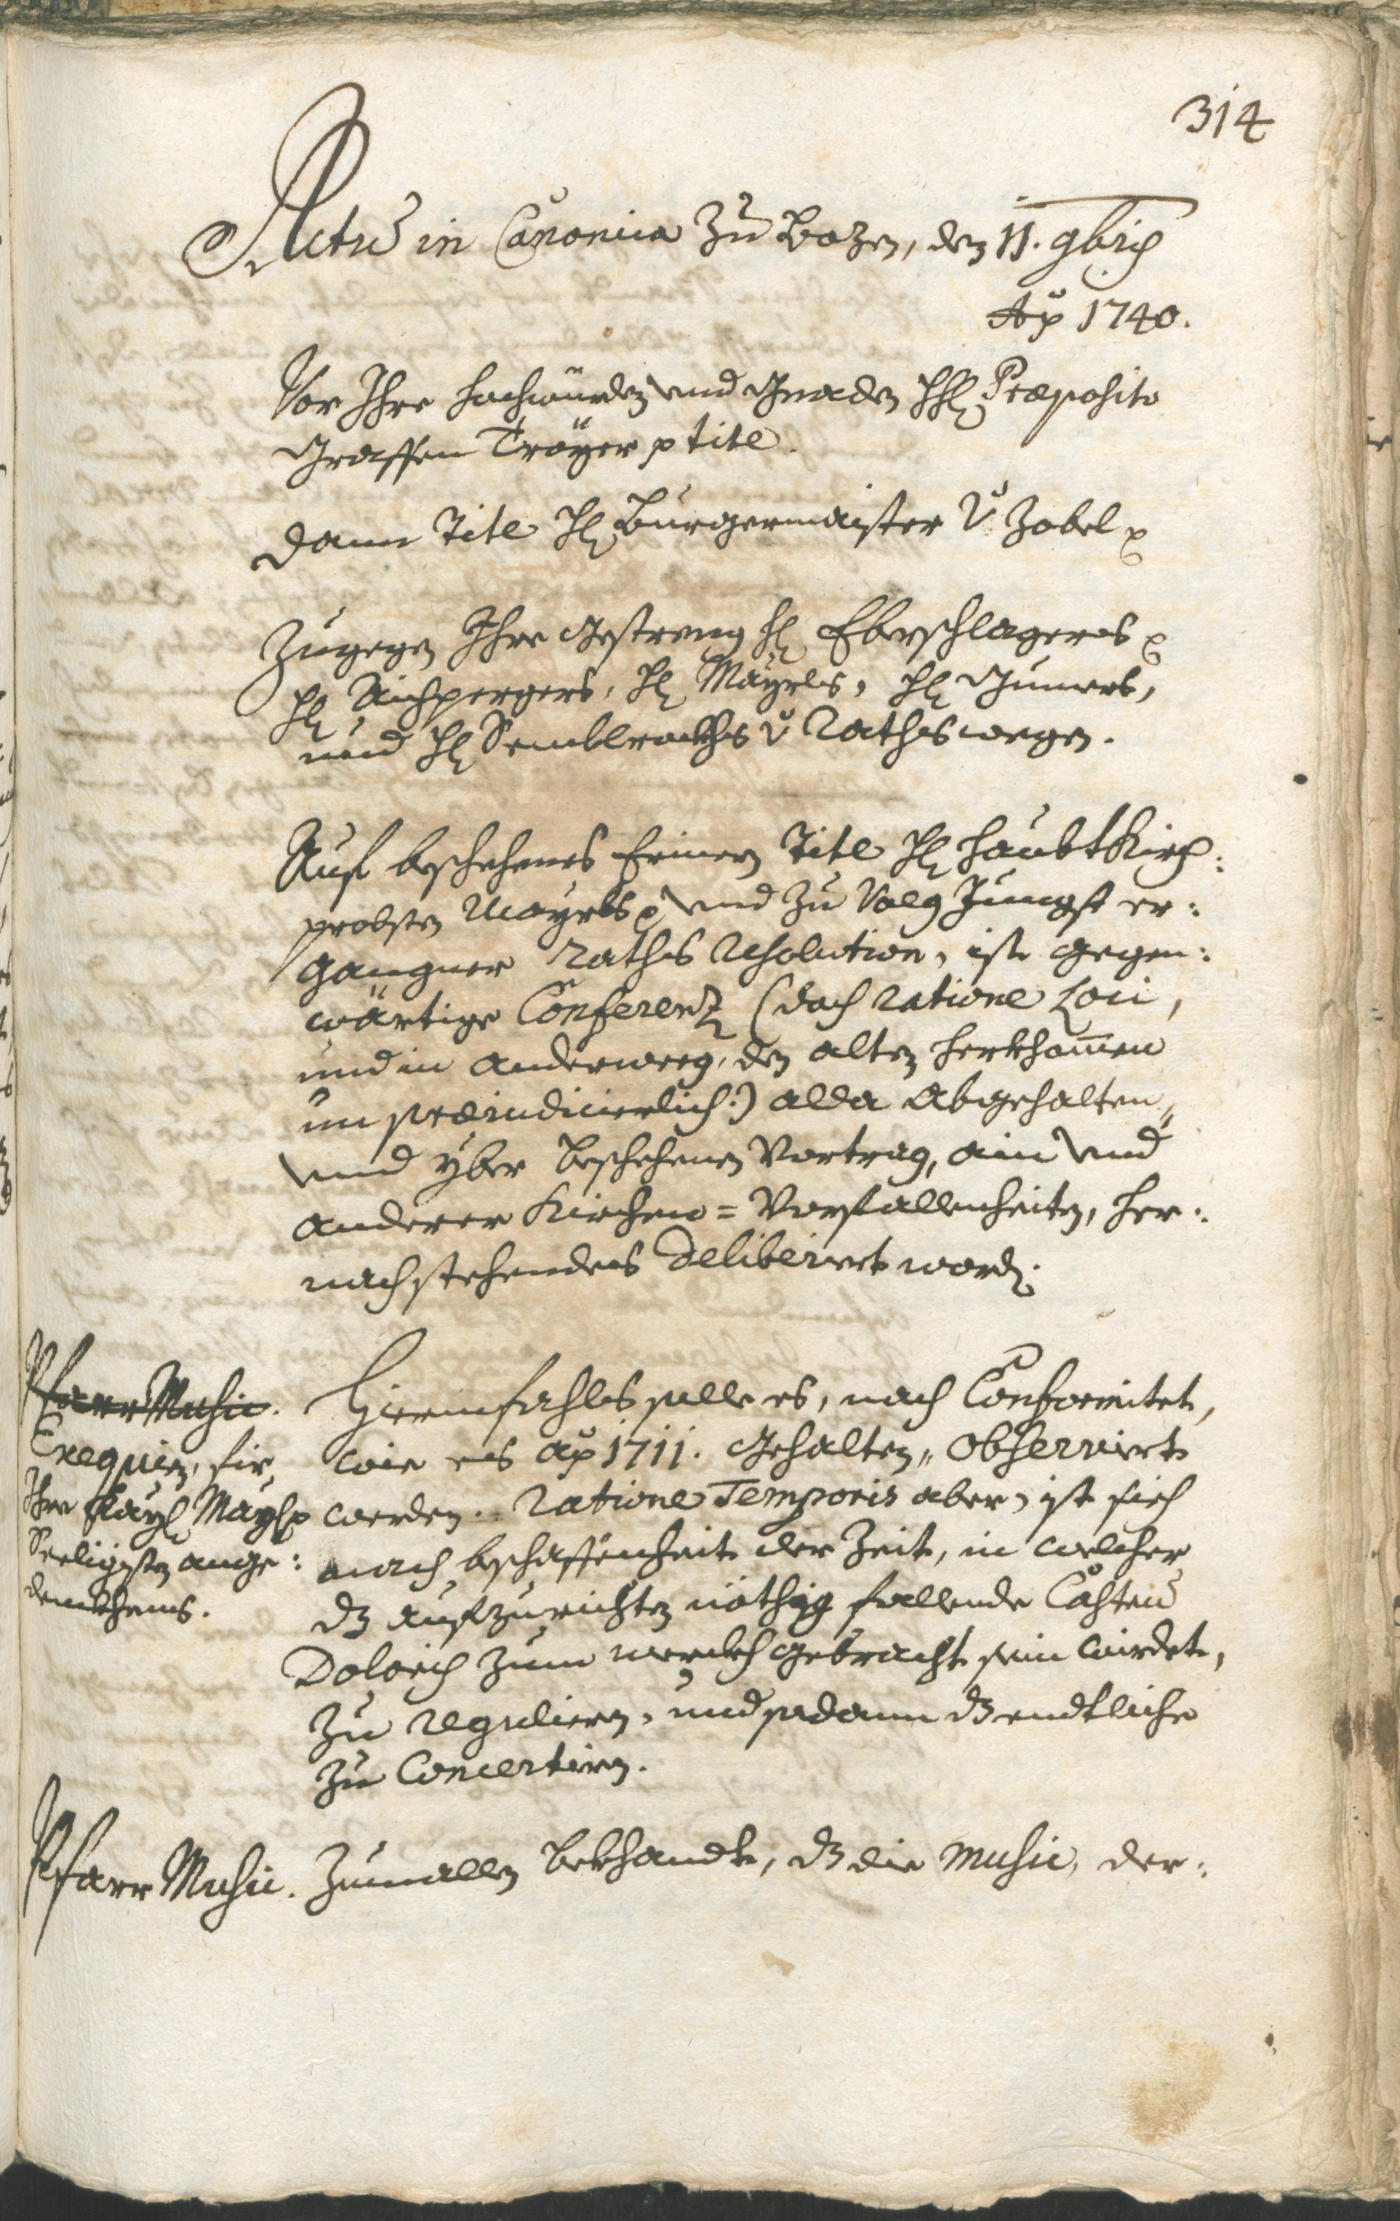 314
Actu in Canonica zu Bozen, den 11. 9bris
Ao 1740.
Vor Ihre Hochwürden und Gnaden HH. Præposito
Graffen Tröyer p titl.
Dann Titl H. Burgermaister v. Zobel p
Zugegen Ihre Gestreng H. Eberschlagers p
H. Aichpergers, H. Mayrls, H. Gumers,
und H. Semblrockhs v. Raths wegen.
Auf beschehenes Erinern Titl H. Haubtkirch:
probsten Mayrls p und zu Volg jungst er:
gangner Raths Resolution, ist gegen:
wärtige Conferenz (doch ratione Loci,
und in anderweeg, den alten Herkhom̄en
un præjudicierlich:) alda abgehalten,,
und yber beschehenen Vortrag, ain und
anderer Kirchen = Vorfallenheiten, her:
nachstehendes deliberiert word.
Pfarr Music.
Exequien, fir
Ihre Kays. Mays. p
Seeligsten ange:
denkhens.
Hierinfahls solle es, nach Conformitet,
wie es ao 1711. gehalten,, observiert
werden. Ratione Temporis aber, ist sich
nach beschaffenheit der Zeit, in welcher
dz aufzurichten nöthig fallende Castru
Doloris zum werckh gebracht sein wirdet,
zu regulieren, und sodann dz endtliche
zu Concertirn.
Pfarr Music.
Zumallen bekhandt, dz die Music, der: